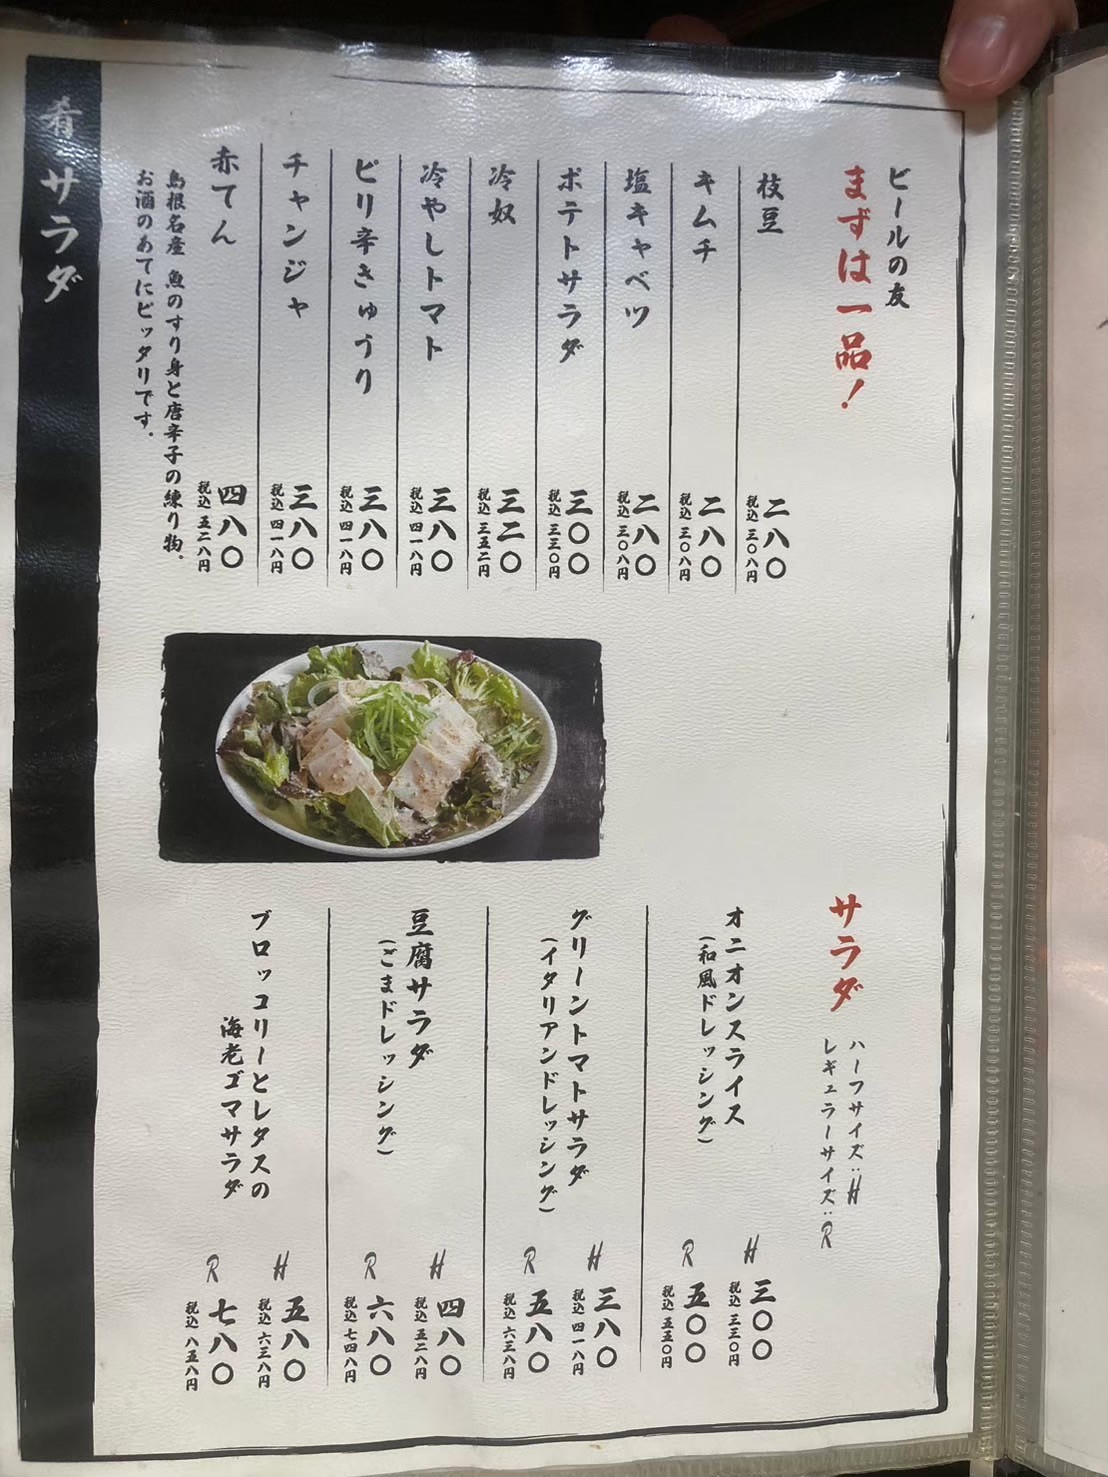 ビールの友
まずは一品！
枝豆
二八〇
税込 三〇八円
キムチ
二八〇
税込 三〇八円
塩キャベツ
二八〇
税込 三〇八円
ポテトサラダ
三〇〇
税込 三三〇円
冷奴
三二〇
税込 三五二円
冷やしトマト
三八〇
税込 四一八円
ピリ辛きゅうり
三八〇
税込 四一八円
チャンジャ
三八〇
税込 四一八円
赤てん
四八〇
税込 五二八円
島根名産 魚のすり身と唐辛子の練り物。
お酒のあてにピッタリです。
サラダ
ハーフサイズ：H
レギュラーサイズ：R
オニオンスライス
(和風ドレッシング)
H 三〇〇
税込 三三〇円
R 五〇〇
税込 五五〇円
グリーントマトサラダ
(イタリアンドレッシング)
H 三八〇
税込 四一八円
R 五八〇
税込 六三八円
豆腐サラダ
(ごまドレッシング)
H 四八〇
税込 五二八円
R 六八〇
税込 七四八円
ブロッコリーとレタスの
海老ゴマサラダ
H 五八〇
税込 六三八円
R 七八〇
税込 八五八円
肴 サラダ